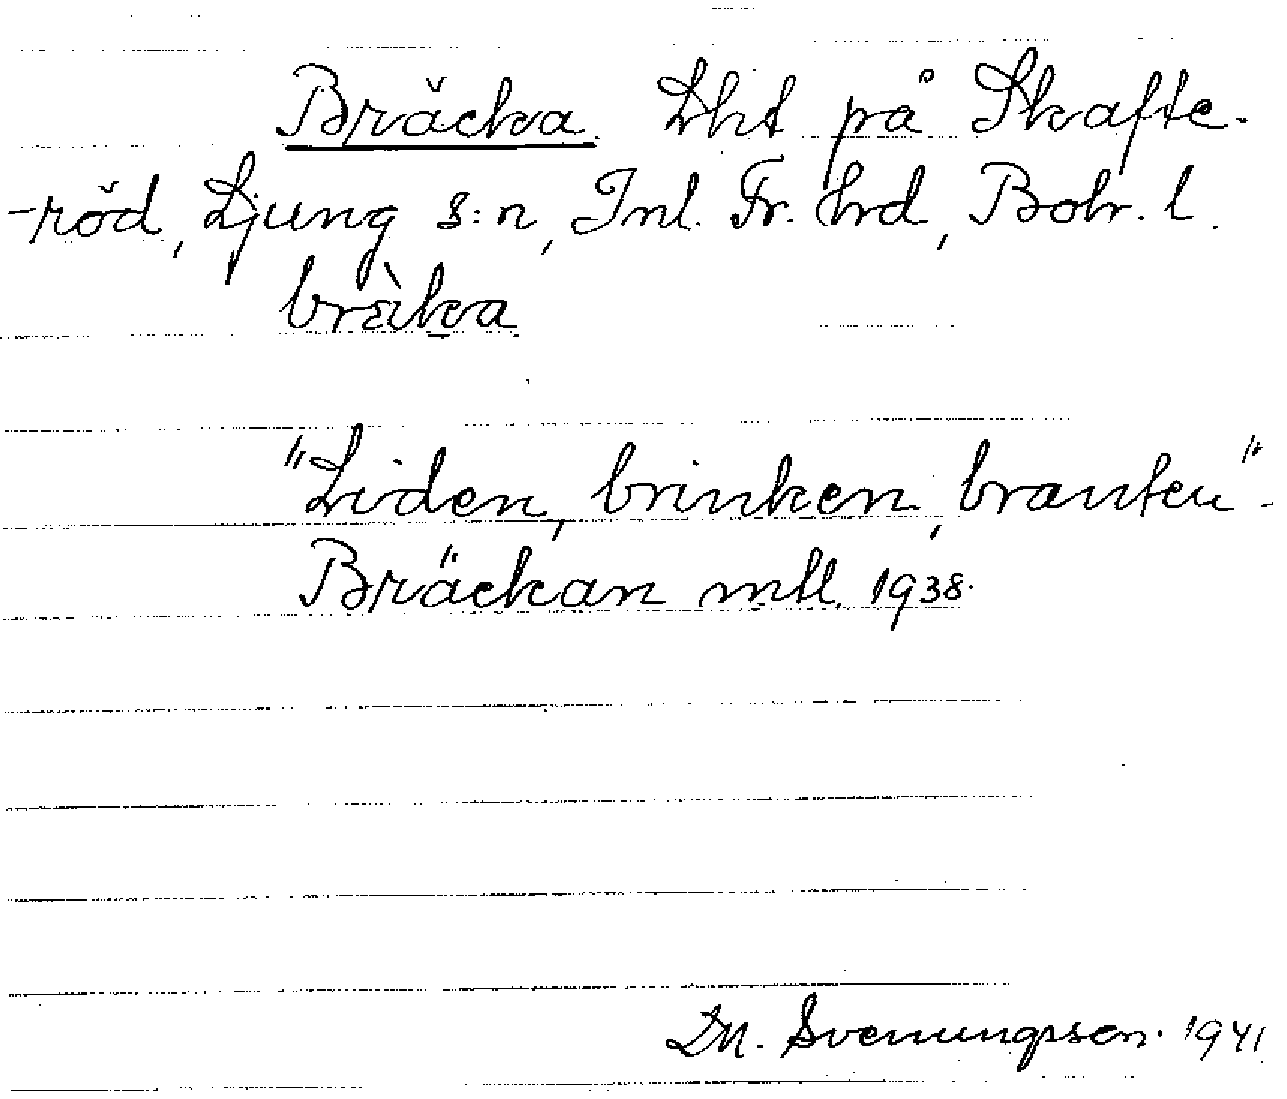 Bräcka. Lht på Skafte-
-röd, Ljung s:n, Inl. Fr. hrd, Boh. l.
brὲka
"Liden, brinken, branten".
Bräckan mtl. 1938.
D.N. Svenungsson. 1941